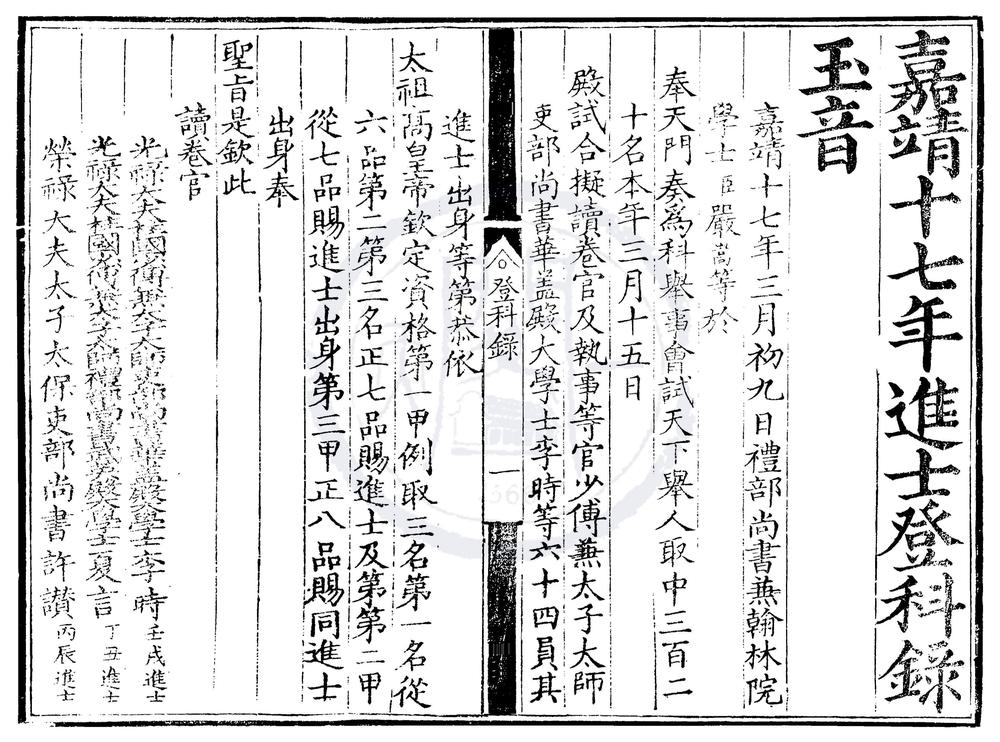 嘉靖十七年進士登科錄
玉音
嘉靖十七年三月初九日禮部尚書兼翰林院
學士臣嚴嵩等於
奉天門奏爲科舉事會試天下舉人取中三百二
十名本年三月十五日
殿試合擬讀卷官及執事等官少傅兼太子太師
吏部尚書華蓋殿大學士李時等六十四員其
登科錄
一
進士出身等第恭依
太祖高皇帝欽定資格第一甲例取三名第一名從
六品第二第三名正七品賜進士及第第二甲
從七品賜進士出身第三甲正八品賜同進士
出身奉
聖旨是欽此
讀卷官
光祿大夫柱國少傅兼太子太師吏部尚書華蓋殿大學士李時壬戌進士
光祿大夫柱國少傅兼太子太師禮部尚書武英殿大學士夏言丁丑進士
榮祿大夫太子太保吏部尚書許讚丙辰進士